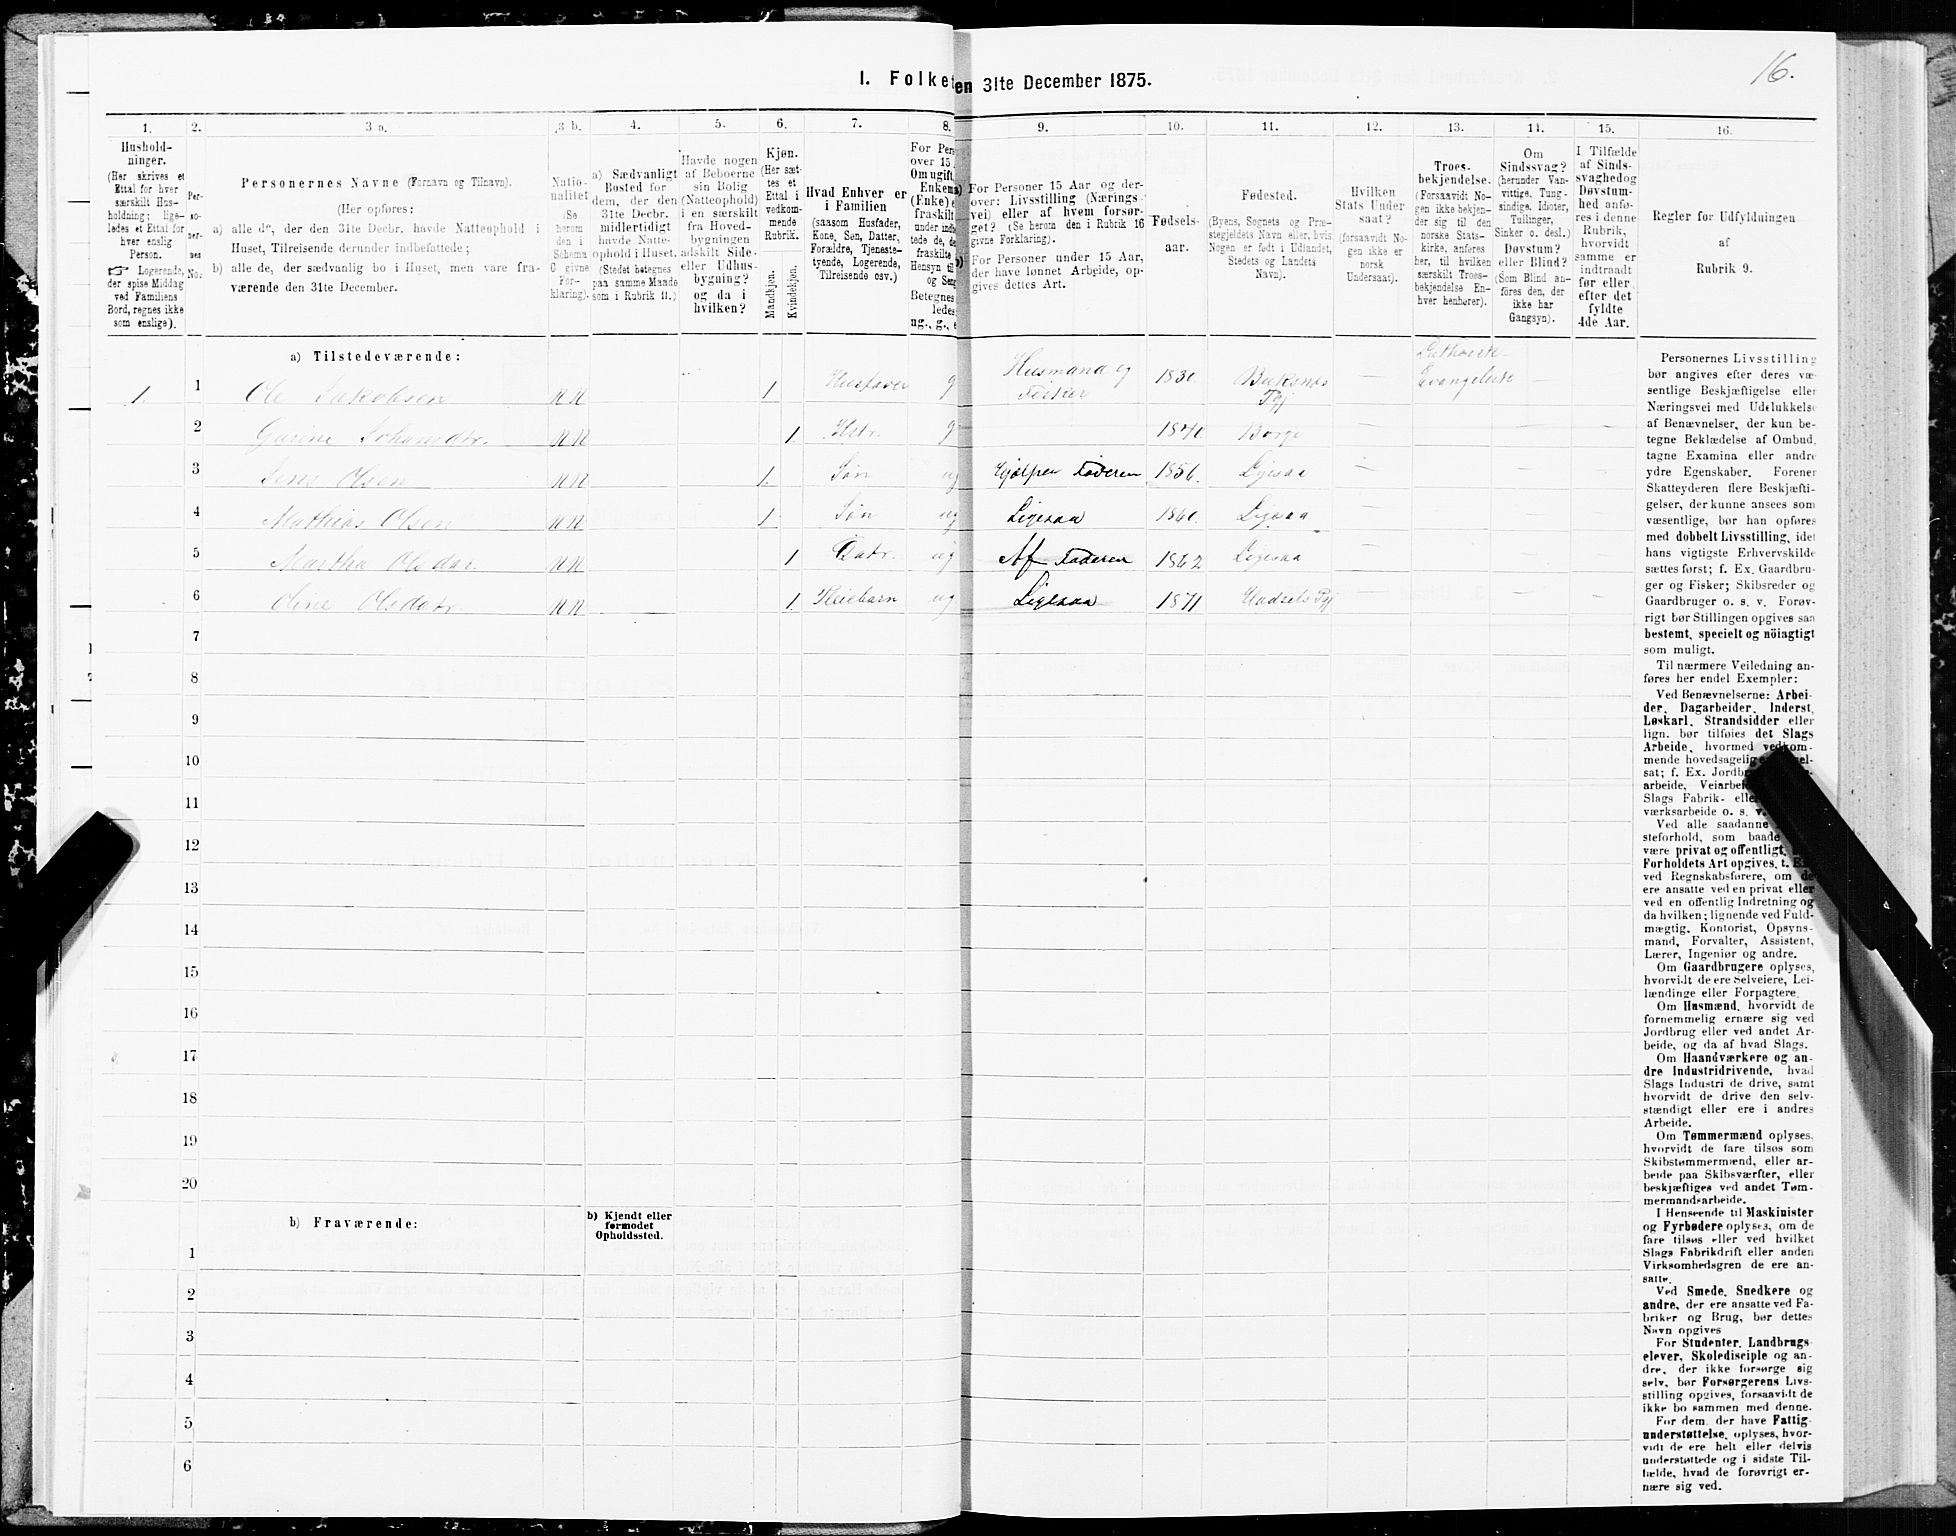 16.
I. Folket en 31te December 1875.
1. 2. 3 a. 3 b. 4. 5. 6. 7. 8. 9. 10. 11. 12. 13. 14. 15. 16.
Hushold-
ninger.
(Her skrives et
Ettal for hver
særskilt Hus-
holdning; lige-
ledes et Ettal for
hver enslig
Person.
☞ Logerende,
der spise Middag
ved Familiens
Bord, regnes ikke
som enslige).
Per-
so-
ner-
nes
No:
Personernes Navne (Fornavn og Tilnavn).
(Her opføres:
a) alle de, der den 31te Decbr. havde Natteophold i
Huset, Tilreisende derunder indbefattede;
b) alle de, der sædvanlig bo i Huset, men vare fra-
værende den 31te December.
Natio-
nalitet
(Se
herom
den i
Schema
O givne
For-
klaring).
a) Sædvanligt
Bosted for
dem, der den
31te Decbr.
midlertidigt
havde Natte-
ophold i Huset.
(Stedet betegnes
paa samme Maade
som i Rubrik 11.)
Havde nogen
af Beboerne
sin Bolig
(Natteophold)
i en særskilt
fra Hoved-
bygningen
adskilt Side-
eller Udhus-
bygning?
og da i
hvilken?
Kjøn.
(Her sæt-
tes et
Ettal i
vedkom-
mende
Rubrik.
Mandkjøn.
Kvindekjøn.
Hvad Enhver er
i Familien
(saasom Husfader,
Kone, Søn, Datter,
Forældre, Tjeneste-
tyende, Logerende,
Tilreisende osv.)
For Per
over 15
Om ugift,
Enkema
(Enke) e
fraskilt
under indb
tede de, de
fraskilte
Hensyn til
og Seng
Betegnes
ledes
ug., g., e
a)
For Personer 15 Aar og der-
over: Livsstilling (Nærings-
vei) eller af hvem forsør-
get? (Se herom den i Rubrik 16
givne Forklaring).
b)
For Personer under 15 Aar,
der have lønnet Arbeide, op-
gives dettes Art.
Fødsels-
aar.
Fødested.
(Byens, Sognets og Præ-
stegjeldets Navn eller, hvis
Nogen er født i Udlandet,
Stedets og Landets
Navn).
Hvilken
Stats Under
saat?
(forsaavidt No-
gen ikke er
norsk
Undersaat).
Troes-
bekjendelse.
(Forsaavidt No-
gen ikke bekjen-
der sig til den
norske Stats-
kirke, anføres
her, til hvilken
særskilt Troes-
bekjendelse En-
hver henhører).
Om
Sindssvag?
(herunder Van-
vittige, Tung-
sindige, Idioter,
Tullinger,
Sinker o. desl.)
Døvstum?
eller Blind?
(Som Blind an-
føres den, der
ikke har
Gangsyn).
I Tilfælde
af Sinds-
svaghedog
Døvstum-
hed anfø-
res i denne
Rubrik,
hvorvidt
samme er
indtraadt
før eller
efter det
fyldte
4de Aar.
Regler for Udfyldningen
af
Rubrik 9.
a) Tilstedeværende:
1. 1 Ole Jakobsen NN 1 Husfader g Husmand og Fisker 1830. Buksnes Pgj — Luthersk- Evangelisk — —
2 Gurine Johansdtr. NN 1. Hstr. g 1840. Borge — — — —
3 Jens Olsen NN 1. Søn ug Hjælper Faderen 1856. Ligesaa — — — —
4 Mathias Olsen NN 1 Søn ug Ligesaa 1860. Ligesaa — — — —
5 Martha Olsdar. NN 1 Datr. ug Af Faderen 1862 Ligesaa — — — —
6 Oline Olsdatr. NN 1. Pleiebarn ug Ligesaa 1871 Hadsels Pgj — — — —
7
8
9
10
11
12
13
14
15
16
17
18
19
20
b) Fraværende:
b) Kjendt eller
formodet
Opholdssted.
1
2
3
4
5
6
Personernes Livsstilling
bør angives efter deres væ-
sentlige Beskjæftigelse eller
Næringsvei med Udelukkelse
af Benævnelser, der kun be-
tegne Beklædelse af Ombud,
tagne Examina eller andre
ydre Egenskaber. Forener
Skatteyderen flere Beskjæfti-
gelser, der kunne ansees som
væsentlige, bør han opføres
med dobbelt Livsstilling, idet
hans vigtigste Erhvervskilde
sættes først; f. Ex. Gaardbru-
ger og Fisker; Skibsreder og
Gaardbruger o. s. v. Forøv-
rigt bør Stillingen opgives saa
bestemt, specielt og nöiagtigt
som muligt.
Til nærmere Veiledning an-
føres her endel Exempler:
Ved Benævnelserne: Arbei-
der, Dagarbeider, Inderst,
Løskarl, Strandsidder eller
lign. bør tilføies det Slags
Arbeide, hvormed vedkom-
mende hovedsagelig
sat; f. Ex.
arbeide,
Slags Fabrik-
værksarbeide o. s. v.
Ved alle saadanne
steforhold, som baade
være privat og offentligt,
Forholdets Art opgives, t. Ex.
ved Regnskabsførere, om de
ere ansatte ved en privat eller
ved en offentlig Indretning og
da hvilken; lignende ved Fuld-
mægtig, Kontorist, Opsyns-
mand, Forvalter, Assistent,
Lærer, Ingeniør og andre.
Om Gaardbrugere oplyses,
hvorvidt de ere Selveiere, Lei-
lændinge eller Forpagtere.
Om Husmænd, hvorvidt de
fornemmelig ernære sig ved
Jordbrug eller ved andet Ar-
beide, og da af hvad Slags.
Om Haandværkere og an-
dre Industridrivende, hvad
Slags Industri de drive, samt
hvorvidt de drive den selv-
stændigt eller ere i andres
Arbeide.
Om Tømmermænd oplyses,
hvorvidt de fare tilsøs som
Skibstømmermænd, eller ar-
beide paa Skibsværfter, eller
beskjæftiges ved andet Tøm-
mermandsarbeide.
I Henseende til Maskinister
og Fyrbødere oplyses, om de
fare tilsøs eller ved hvilket
Slags Fabrikdrift eller anden
Virksomhedsgren de ere an-
satte.
Ved Smede, Snedkere og
andre, der ere ansatte ved Fa-
briker og Brug, bør dettes
Navn opgives
For Studenter, Landbrugs-
elever, Skoledisciple og an-
dre, der ikke forsørge sig
selv, bør Forsørgerens Livs-
stilling opgives, forsaavidt de
ikke bo sammen med denne.
For dem, der have Fattig-
understøttelse, oplyses, hvor-
vidt de ere helt eller delvis
understøttede og i sidste Til-
fælde, hvad de forøvrigt er-
nære sig ved.